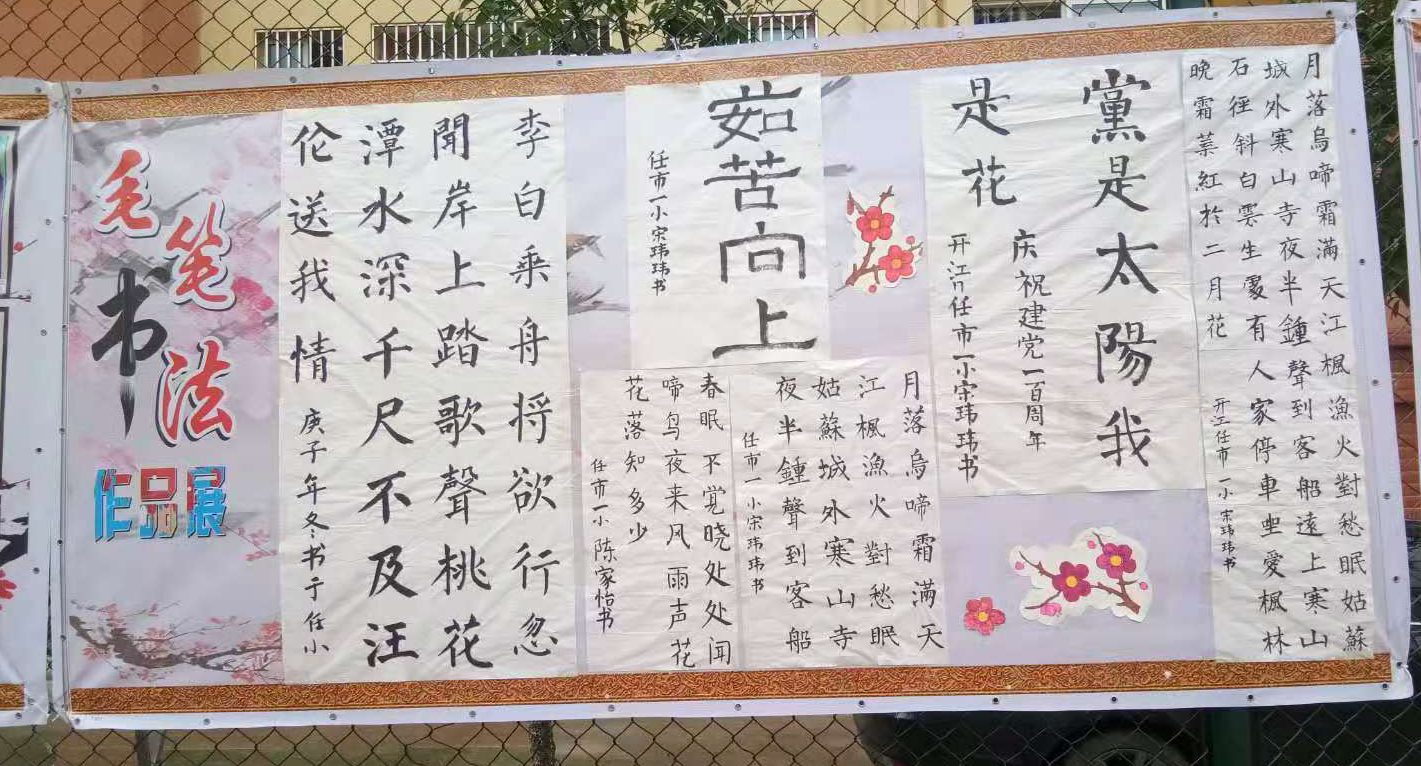 毛笔
书法
作品展
李白乘舟将欲行忽
聞岸上踏歌聲桃花
潭水深千尺不及汪
伦送我情
庚子年冬书于任小
茹苦向上
任市一小宋玮玮书
春眠不觉晓处处闻
啼鸟夜来风雨声花
花落知多少
任市一小陈家怡书
月落烏啼霜滿天
江楓漁火對愁眠
姑蘇城外寒山寺
夜半鍾聲到客船
任市一小宋玮玮书
黨是太陽我
是花
庆祝建党一百周年
开江任市一小宋玮玮书
月落烏啼霜滿天江楓漁火對愁眠姑蘇
城外寒山寺夜半鍾聲到客船遠上寒山
石徑斜白雲生處有人家停車坐愛楓林
晚霜葉紅於二月花
开江任市一小宋玮玮书